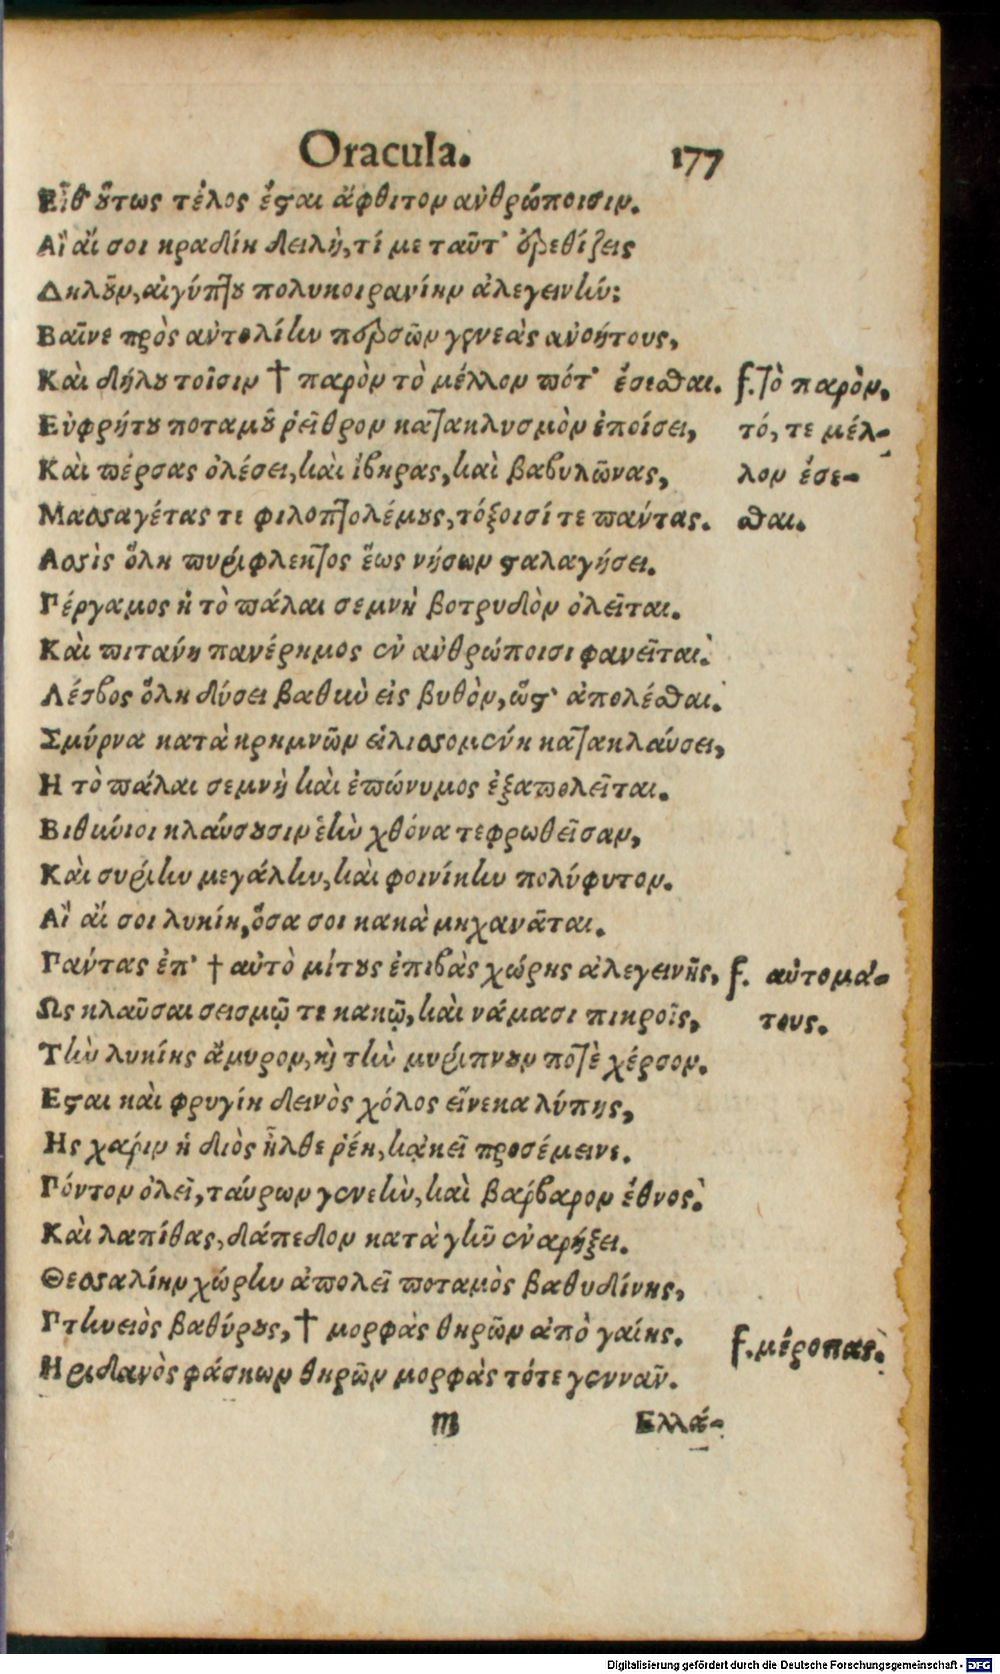 Oracula. 177
Εἶθ᾽ οὕτως τέλος ἔσται ἄφθιτον ἀνθρώποισιν.
Αἲ αἴ σοι κραδίη δειλὴ, τί με ταῦτ᾽ ἐρεθίζεις
Δηλοῦν, αἰγύπτου πολυκοιρανίην ἀλεγεινὴν;
Βαῖνε πρὸς ἀντολίην περσῶν γενεὰς ἀνοήτους,
Καὶ δήλου τοῖσιν † παρὸν τὸ μέλλον πότ᾽ ἔσεσθαι. f. τὸ παρὸν,
Εὐφρήτου ποταμοῦ ῥεῖθρον κατακλυσμὸν ἐποίσει, τό, τε μέλ-
Καὶ πέρσας ὀλέσει, καὶ ἴβηρας, καὶ βαβυλῶνας, λον ἔσε-
Μασσαγέτας τε φιλοπτολέμους, τόξοισί τε πάντας. σθαι.
Ασσὶς ὅλη πυρίφλεκτος ἕως νήσων σταλαγήσει.
Πέργαμος ἡ τὸ πάλαι σεμνὴ βοτρυδὸν ὀλεῖται.
Καὶ πιτάνη πανέρημος ἐν ἀνθρώποισι φανεῖται.
Λέσβος ὅλη δύσει βαθιὺ εἰς βυθὸν, ὥστ᾽ ἀπολέσθαι.
Σμύρνα κατὰ κρημνῶν εἱλισσομένη κατακλαύσει,
Η τὸ πάλαι σεμνὴ καὶ ἐπώνυμος ἐξαπολεῖται.
Βιθυνοὶ κλαύσουσιν ἑὴν χθόνα τεφρωθεῖσαν,
Καὶ συρίην μεγάλην, καὶ φοινίκην πολύφυτον.
Αἲ αἴ σοι λυκίη, ὅσα σοι κακὰ μηχανᾶται.
Πάντας ἐπ᾽ † αὐτὸ μίτους ἐπιβὰς χώρης ἀλεγεινῆς, f. αὐτομά-
Ως κλαῦσαι σεισμῷ τε κακῷ, καὶ νάμασι πικροῖς, τους.
Τὴν λυκίης ἄμυρον, καὶ τὴν μυρίπνουν ποτὲ χέρσον.
Εσται καὶ φρυγίη δεινὸς χόλος εἵνεκα λύπης,
Ης χάριν ἡ διὸς ἦλθε ῥέη, κἀκεῖ προσέμεινε.
Πόντον ὀλεῖ, ταύρων γενεὴν, καὶ βάρβαρον ἔθνος.
Καὶ λαπίθας, δάπεδον κατὰ γῆν ἐναρήξει.
Θεσσαλίην χώρην ἀπολεῖ ποταμὸς βαθυδίνης,
Πηνειὸς βαθύρους, † μορφὰς θηρῶν ἀπὸ γαίης. f. μέροπας.
Ηριδανὸς φάσκων θηρῶν μορφὰς τότε γεννᾶν.
m Ελλά-
Digitalisierung gefördert durch die Deutsche Forschungsgemeinschaft - DFG